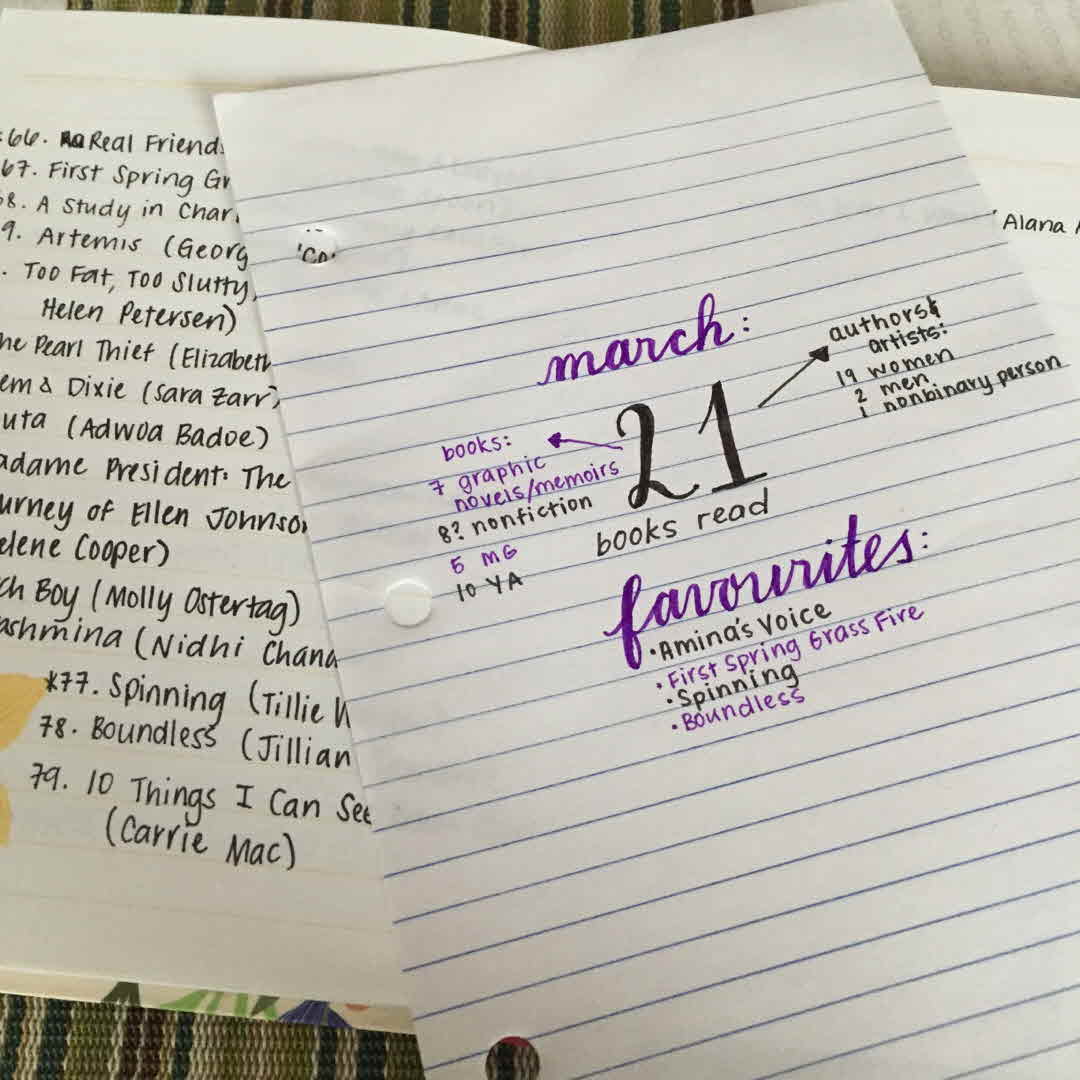 66. Real Friend
67. First Spring Gr
8. A Study in Char
9. Artemis (Georg
. Too Fat, Too Slutty,
Helen Petersen)
he Pearl Thief (Elizabeth
em & Dixie (Sara Zarr)
uta (Adwoa Badoe)
adame President: The
urney of Ellen Johnso
elene Cooper)
ch Boy (Molly Ostertag)
ashmina (Nidhi Chana
*77. Spinning (Tillie W
78. Boundless (Jillian
79. 10 Things I Can See
(Carrie Mac)
'Co
march:
21
books read
authors &
artists:
19 women
2 men
1 nonbinary person
books:
7 graphic
novels/memoirs
8? nonfiction
5 MG
10 YA
favourites:
• Amina's Voice
• First Spring Grass Fire
• Spinning
• Boundless
Alana